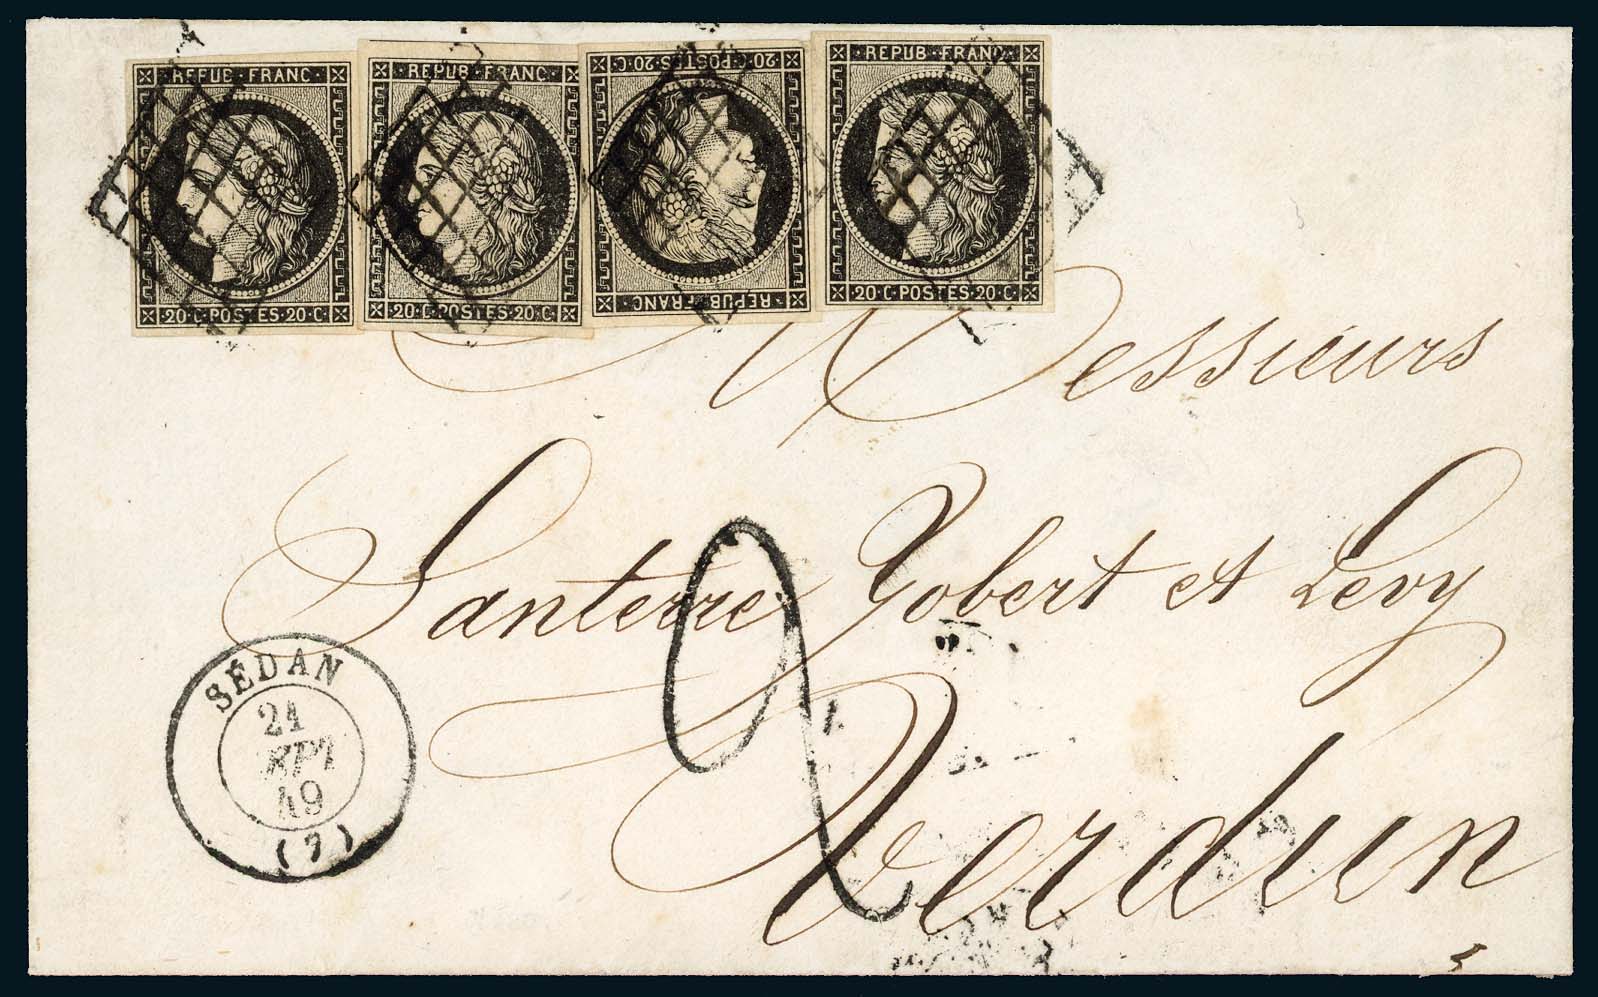 REPUB·FRANC·
20·C·POSTES·20·C·
REPUB·FRANC·
20·C·POSTES·20·C·
20·C·POSTES·20·C·
REPUB·FRANC·
REPUB·FRANC·
20·C·POSTES·20·C·
Messieurs
Santerre Gobert et Levy
Verdun
2
SÉDAN
21
SEPT
49
(7)